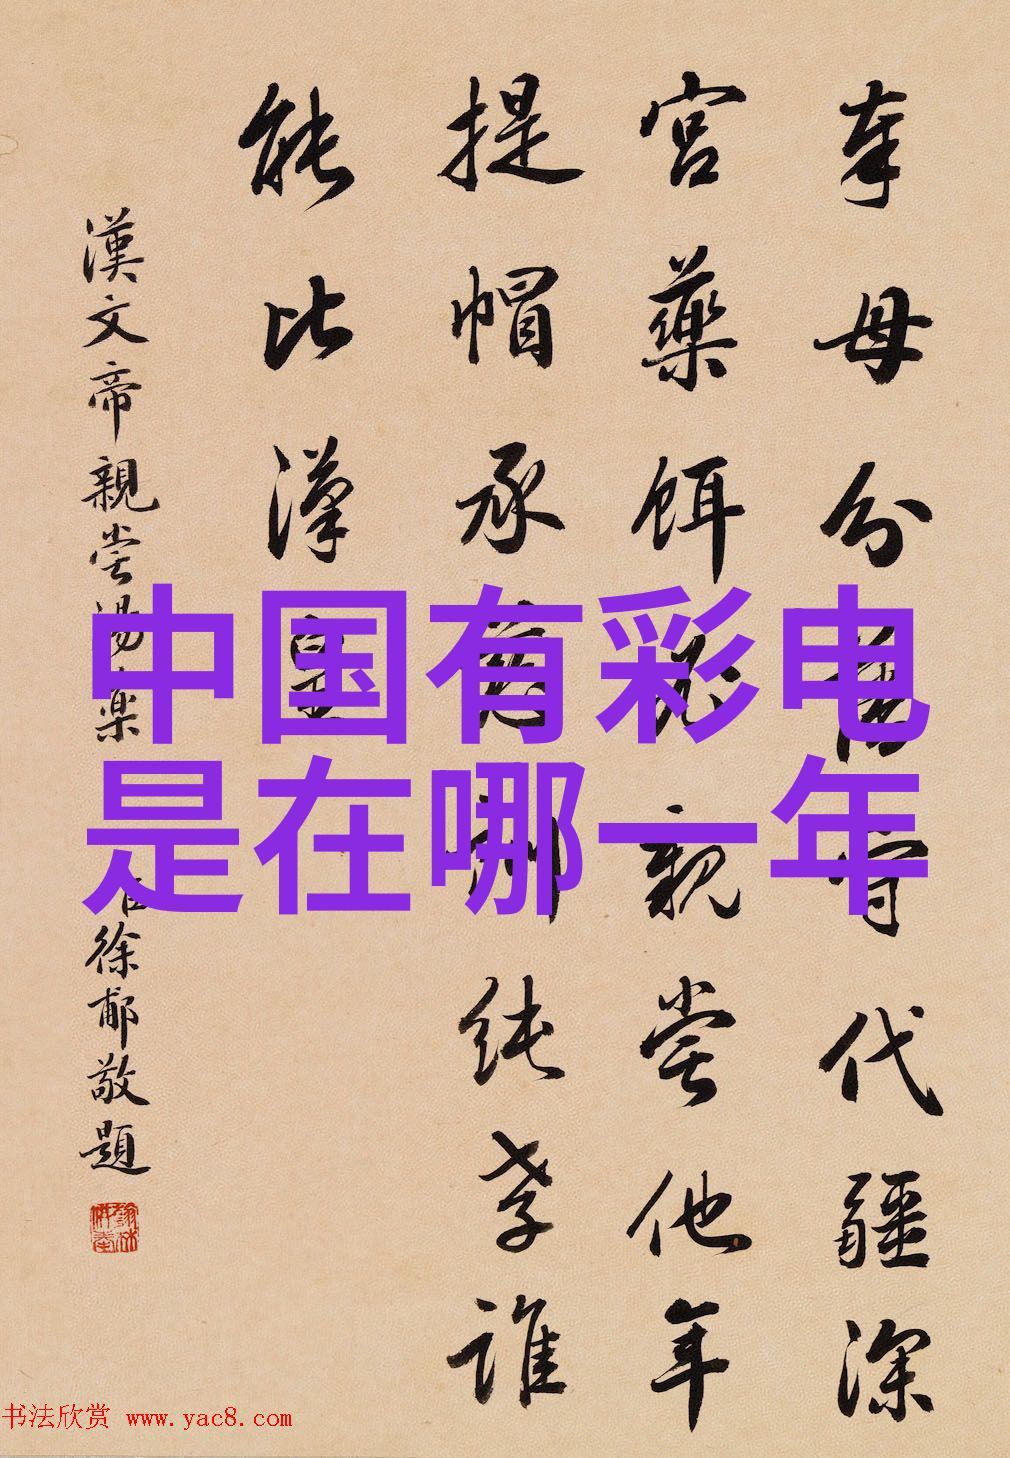 奉母分藩守代疆深
宮藥餌必親嘗他年
提帽承薄
純孝誰
能比漢皇
漢文帝親嘗湯藥
臣徐郙敬題
中国有彩电
是在哪一年
书法欣赏 www.yac8.com